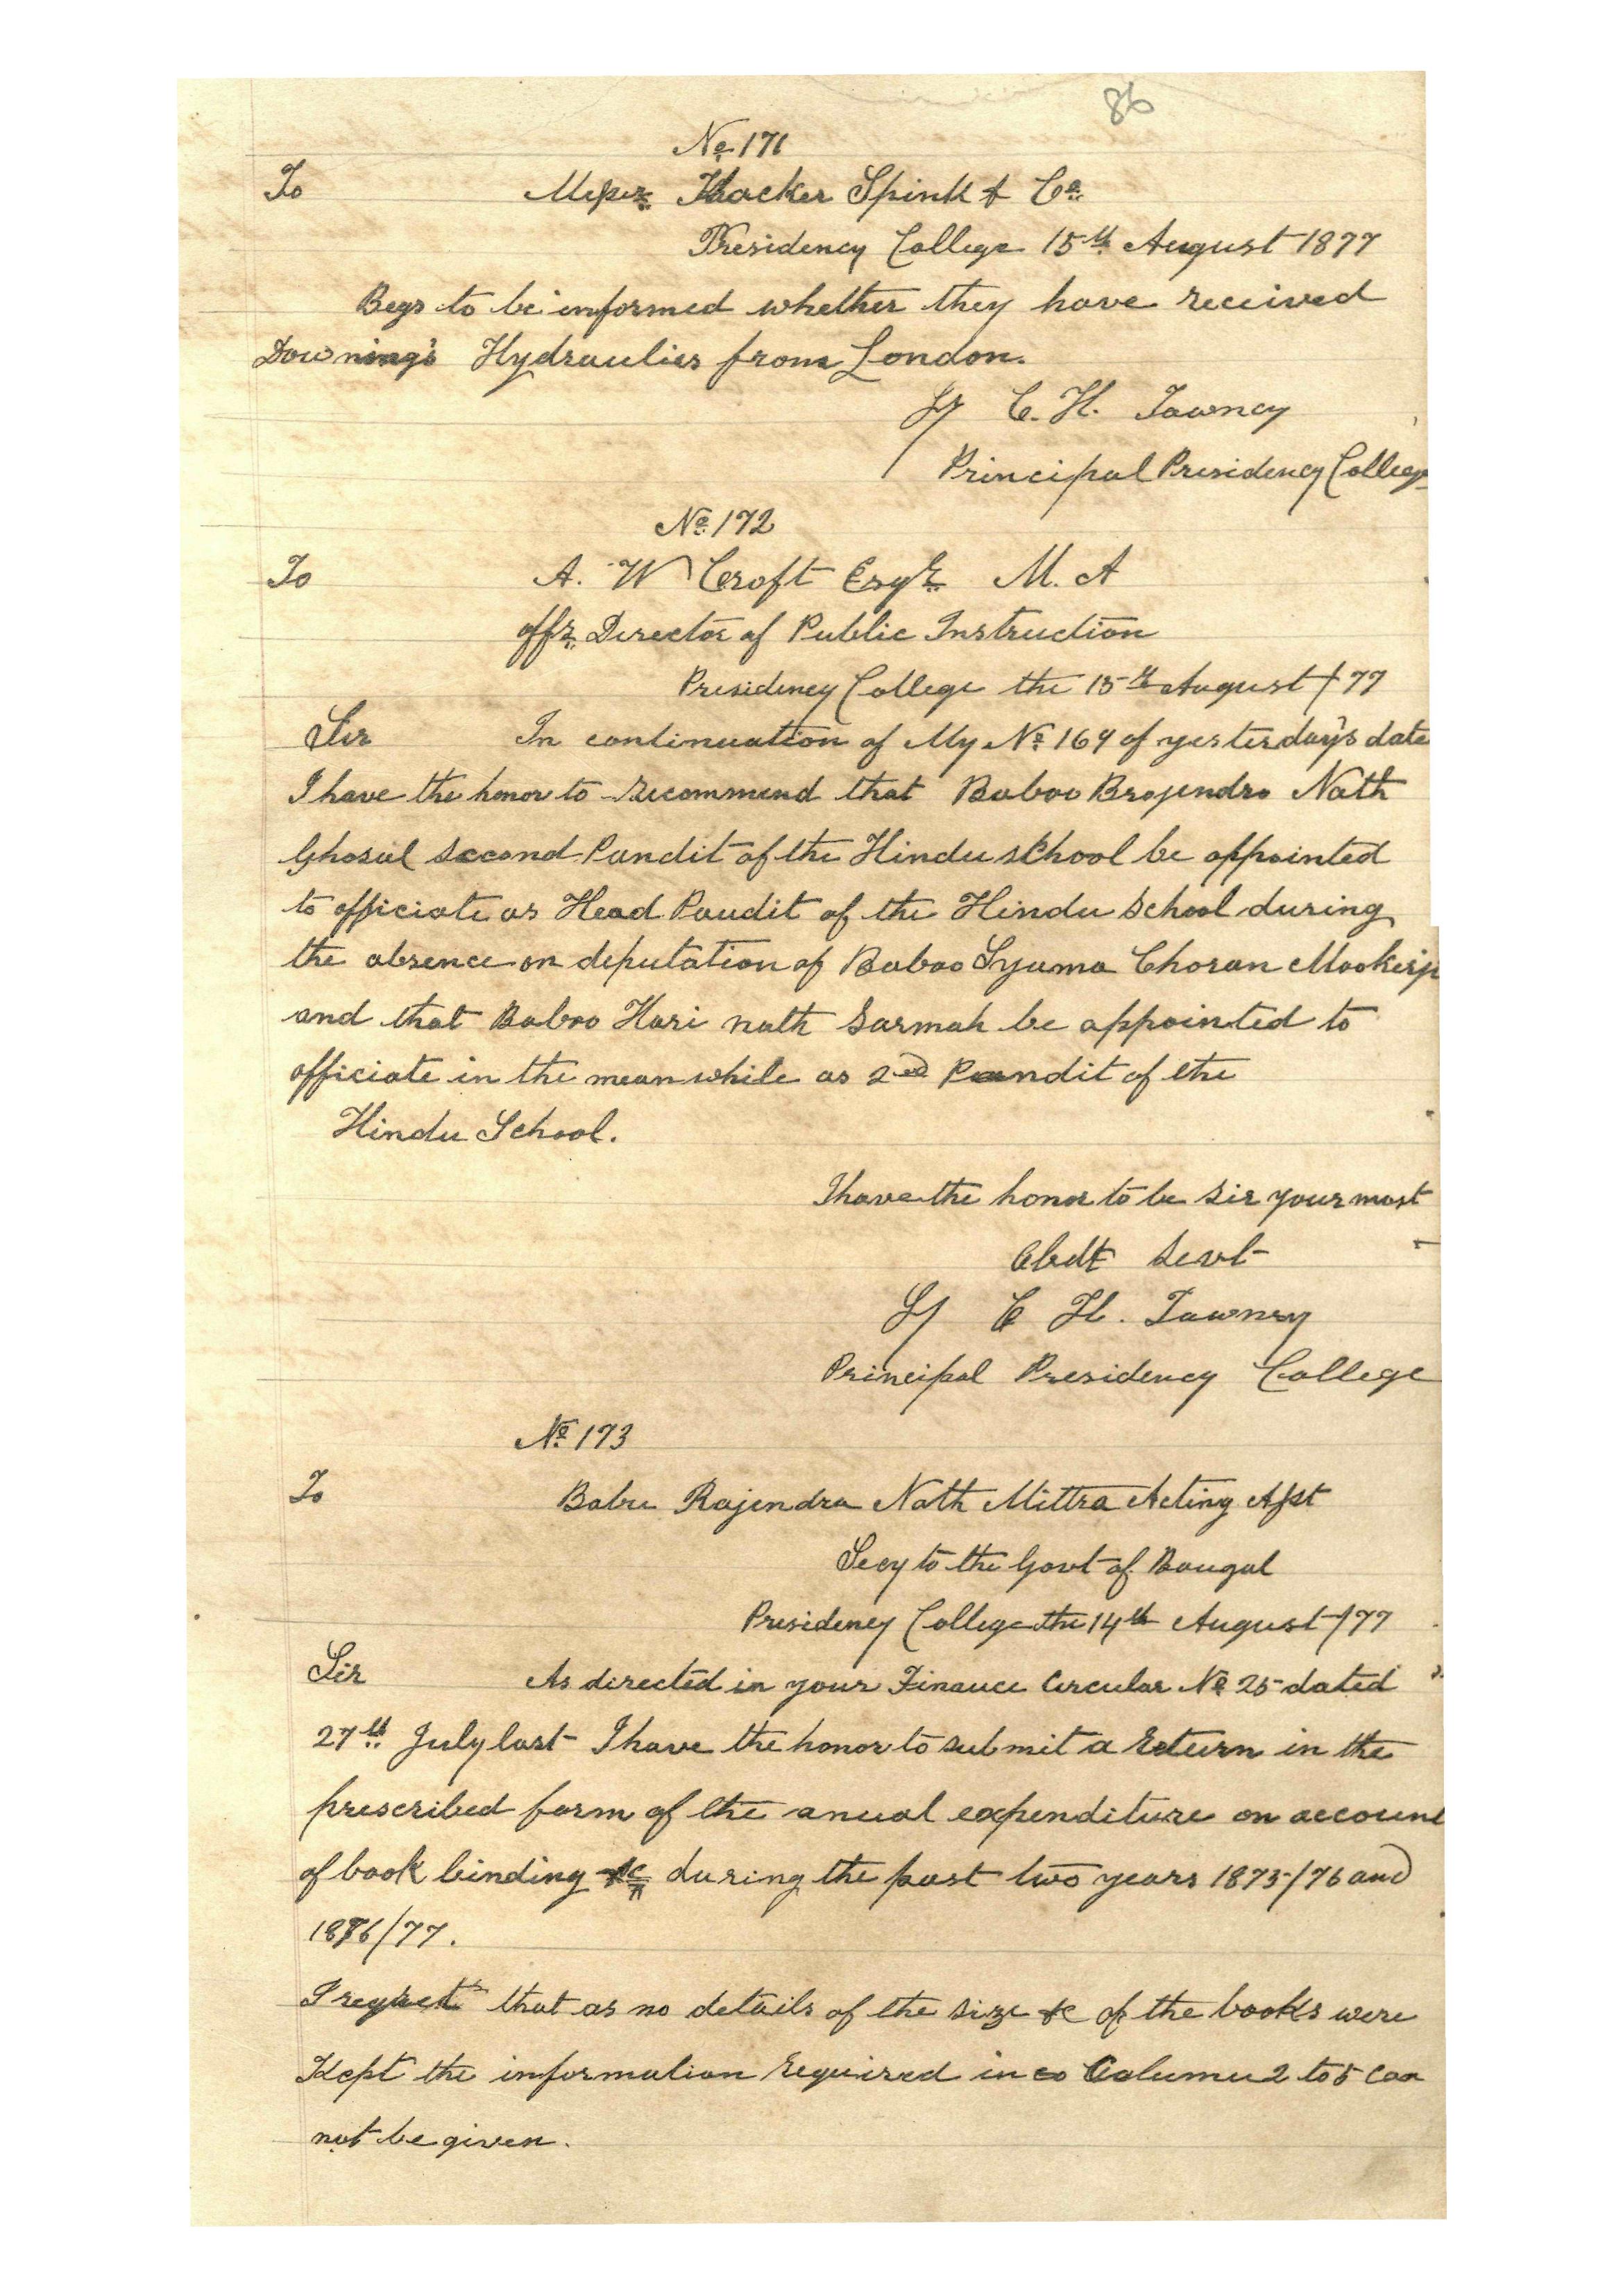 86
No 171
To Messrs Thacker Spink & Co.
Presidency College 15th August 1877
Begs to be informed whether they have received
Downing's Hydraulics from London.
Sy C. H. Tawney
Principal Presidency College
No 172
To A. W Croft Esqr M. A
offg Director of Public Instruction
Presidency College the 15th August /77
Sir In continuation of My No 169 of yesterday's date
I have the honor to recommend that Baboo Brojendro Nath
Ghosal second Pundit of the Hindu school be appointed
to officiate as Head Pundit of the Hindu School during
the absence on deputation of Baboo Syama Choran Mookerje
and that Baboo Hari nath Sarmah be appointed to
officiate in the mean while as 2nd Pundit of the
Hindu School.
I have the honor to be Sir your most
Obdt Servt
Sy C H. Tawney
Principal Presidency College
No 173
To Babu Rajendra Nath Mittra Acting Asst
Secy to the Govt of Bengal
Presidency College the 14th August /77
Sir As directed in your Finance Circular No 25 dated
27th July last I have the honor to submit a Return in the
prescribed form of the anual expenditure on account
of book binding &c during the past two years 1875/76 and
1876/77.
I regret that as no details of the size &c of the books were
Kept the information required in Column 2 to 5 can
not be given.